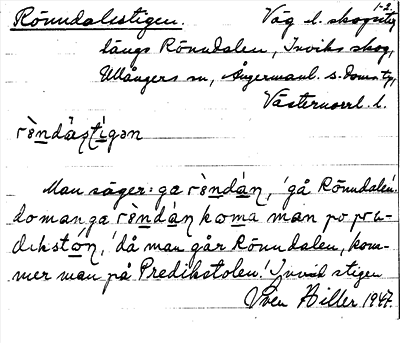 1-2.
Rönndalsstigen. Väg l. skogsstig
längs Rönndalen, Inviks skog,
Ullångers sn, Ångermanl. s. doms. tg,
Västernorrl. l.
rèndàstígən
Man säger: ga rèndán, 'gå Rönndalen'.
do man ga rèndán koma man po pra-
dikstón, 'då man går Rönndalen, kom-
mer man på Predikstolen'. Invid stigen
Sven Hiller 1947.